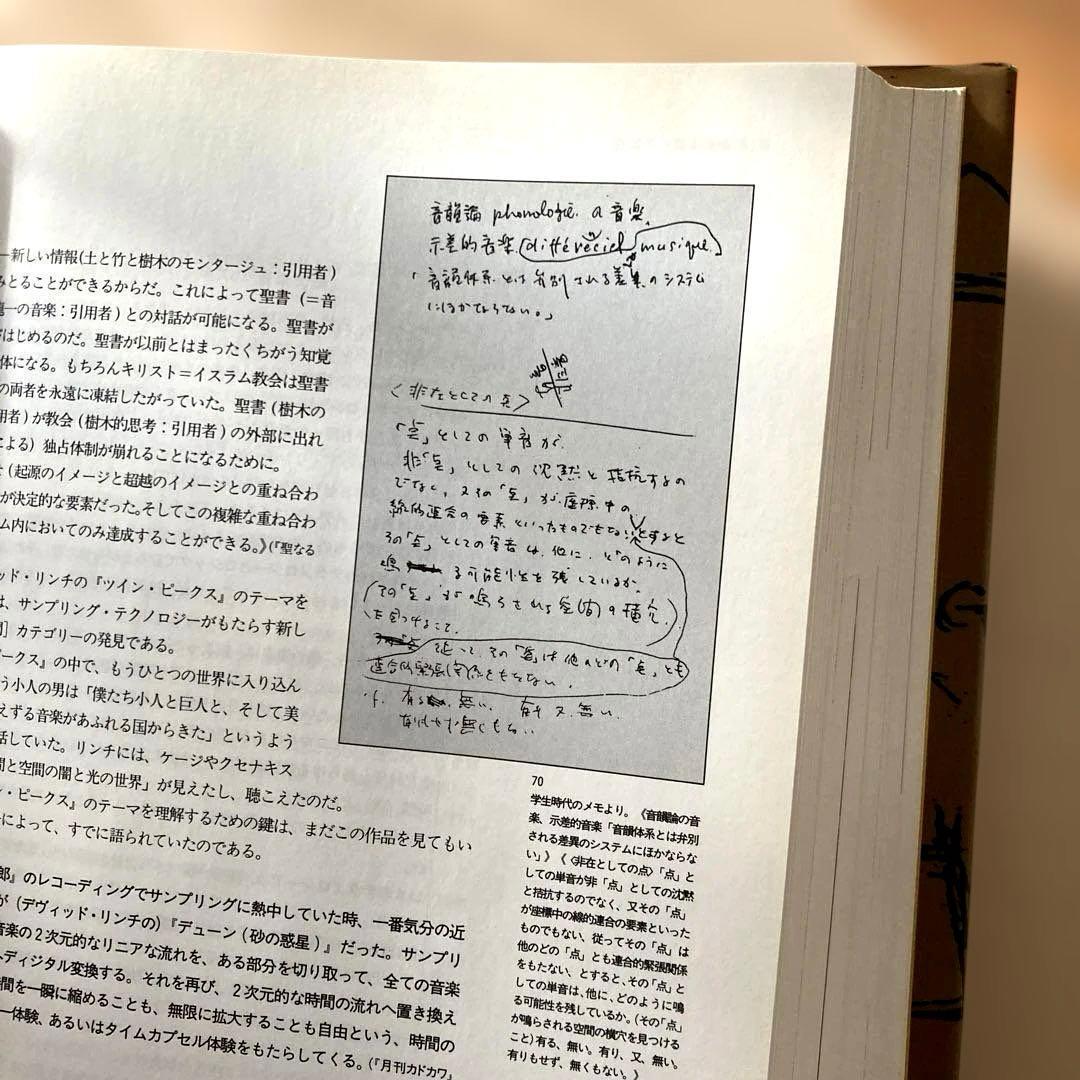 ―新しい情報(土と竹と樹木のモンタージュ：引用者)
みとることができるからだ。これによって聖書 (＝音
龍一の音楽：引用者) との対話が可能になる。聖書が
はじめるのだ。聖書が以前とはまったくちがう知覚
体になる。もちろんキリスト＝イスラム教会は聖書
の両者を永遠に凍結したがっていた。聖書 (樹木の
用者) が教会 (樹木的思考：引用者) の外部に出れ
による) 独占体制が崩れることになるために。
(起源のイメージと超越のイメージとの重ね合わ
が決定的な要素だった。そしてこの複雑な重ね合わ
ム内においてのみ達成することができる。》(『聖なる
ッド・リンチの『ツイン・ピークス』のテーマを
は、サンプリング・テクノロジーがもたらす新し
間］カテゴリーの発見である。
ピークス』の中で、もうひとつの世界に入り込ん
う小人の男は「僕たち小人と巨人と、そして美
えずる音楽があふれる国からきた」というよう
話していた。リンチには、ケージやクセナキス
間と空間の闇と光の世界」が見えたし、聴こえたのだ。
ン・ピークス』のテーマを理解するための鍵は、まだこの作品を見てもい
によって、すでに語られていたのである。
郎』のレコーディングでサンプリングに熱中していた時、一番気分の近
が (デヴィッド・リンチの)『デューン (砂の惑星)』だった。サンプリ
音楽の２次元的なリニアな流れを、ある部分を切り取って、全ての音楽
ディジタル変換する。それを再び、２次元的な時間の流れへ置き換え
時間を一瞬に縮めることも、無限に拡大することも自由という、時間の
一体験、あるいはタイムカプセル体験をもたらしてくる。(『月刊カドカワ』
音韻論 phonologie の音楽、
示差的音楽 (différéciel musique.)
「音韻体系とは弁別される差異のシステム
にほかならない。」
〈非在としての点〉
「点」としての単音が
非「点」としての沈黙と拮抗するの
でなく、又その「点」が座標中の
線的連合の要素といったものでもない とすると
その「点」としての単音は、他に、どのように
鳴る可能性を残しているか。
(その「点」が鳴らされる空間の横穴
を見つけること.
従って、その「点」は他のどの「点」とも
連合的緊張関係をもたない.
有る 無い. 有り 又 無い.
有りもせず 無くもない
70
学生時代のメモより。《音韻論の音
楽、示差的音楽「音韻体系とは弁別
される差異のシステムにほかならな
い」》《〈非在としての点〉「点」と
しての単音が非「点」としての沈黙
と拮抗するのでなく、又その「点」
が座標中の線的連合の要素といった
ものでもない、従ってその「点」は
他のどの「点」とも連合的緊張関係
をもたない、とすると、その「点」と
しての単音は、他に、どのように鳴
る可能性を残しているか。(その「点」
が鳴らされる空間の横穴を見つける
こと) 有る、無い。有り、又、無い。
有りもせず、無くもない。》